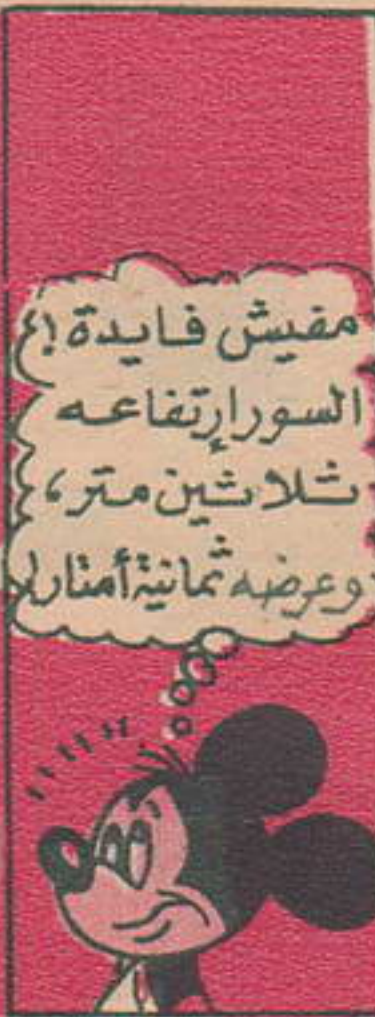 مفيش فايدة !
السور إرتفاعه
ثلاثين متر ،
وعرضه ثمانية أمتار !